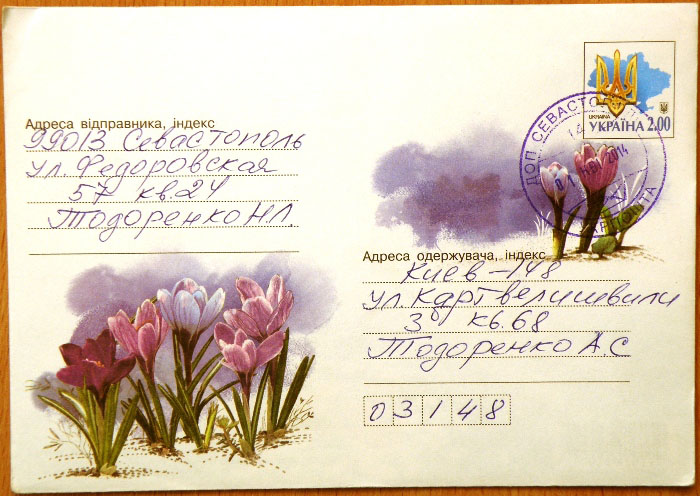 Адреса відправника, індекс
99013 Севастополь
ул. Федоровская
57 кв.24
Тодоренко Н.Л.
UKRAINE
УКРАЇНА 2.00
ДОП СЕВАСТО
01 2014
Адреса одержувача, індекс
Киев-148
ул. Картвелишвили
3 кв.68
Тодоренко А.С
03148